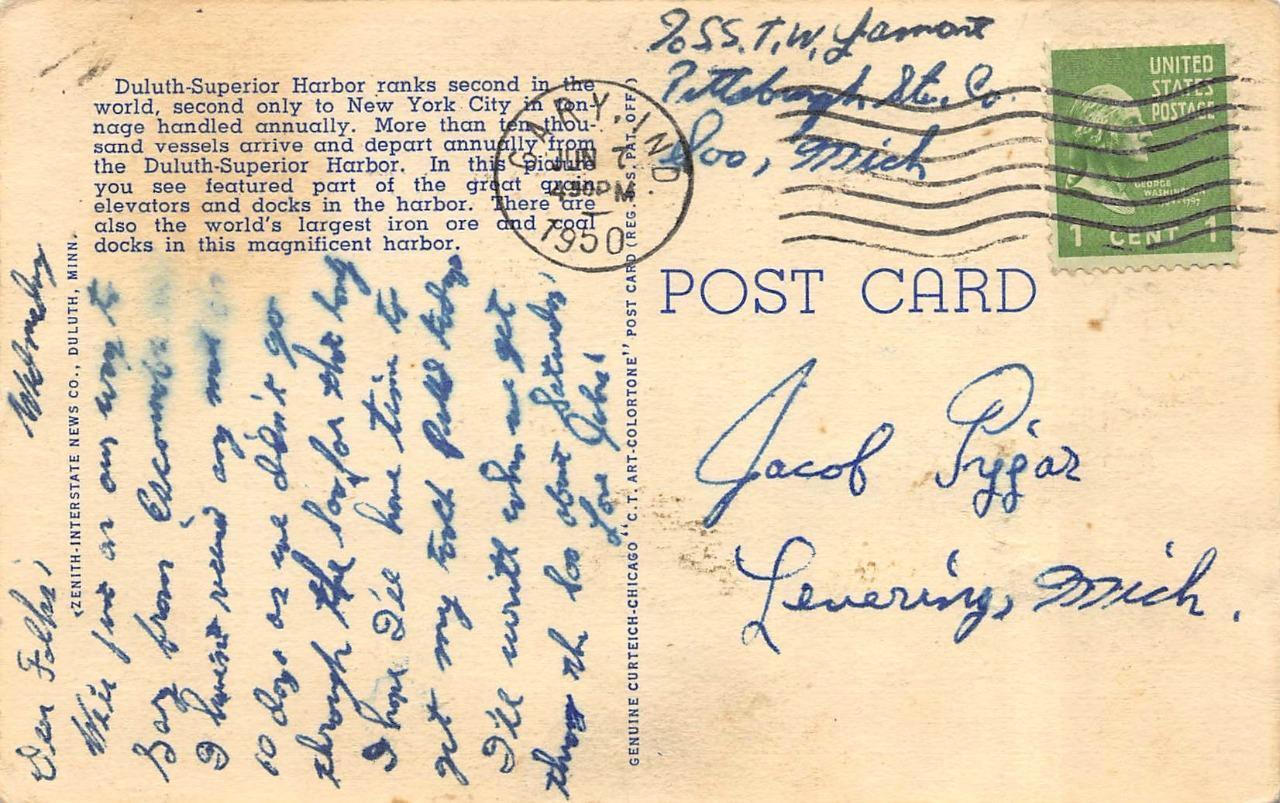 Duluth-Superior Harbor ranks second in the
world, second only to New York City in ton-
nage handled annually. More than ten thou-
sand vessels arrive and depart annually from
the Duluth-Superior Harbor. In this picture
you see featured part of the great grain
elevators and docks in the harbor. There are
also the world's largest iron ore and coal
docks in this magnificent harbor.
ZENITH-INTERSTATE NEWS CO., DULUTH, MINN.
Wednesday
Dear Folks;
We're just on our way to
Bay from
I haven't received any
10 days as we didn't go
through the Soo for that long
I hope I'll have time to
get my today
I'll write when we get
thru the Soo about Saturday
Love John
GENUINE CURTEICH-CHICAGO "C.T. ART-COLORTONE" POST CARD (REG. U.S. PAT. OFF.)
% S.S. T.W. Lamont
Pittsburgh Ste. Co.
Soo, Mich
GARY, IND.
JUN 7
4 30 PM
1950
UNITED
STATES
POSTAGE
GEORGE
WASHINGTON
1 CENT 1
POST CARD
Jacob Pyjar
Levering, Mich.